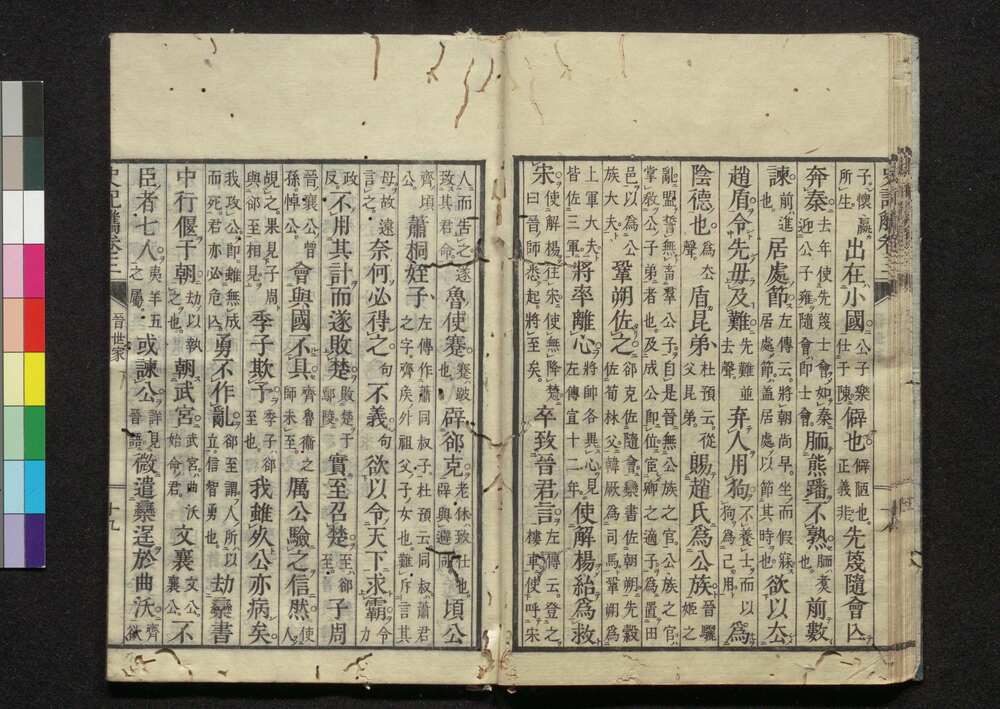 子懷嬴所生出在小國公子樂仕于陳僻也僻陋也正義非先蔑隨會亾
奔秦去年使先蔑士會如秦迎公子雍隨會即士會胹熊蹯不熟胹煮也前數
諫前進居處節左傳云將朝尚早坐而假寐居處節蓋居處以節其時也欲以公
趙盾令先毋及難先難並去聲弃人用狗不養士而以狗為己用為
陰德也為去聲盾昆弟杜預云從父昆弟賜趙氏為公族晉驪姬之
亂盟誓無畜羣公子自是晉無公族之官公族之官掌教公子弟者也及成公即位宦卿之適子為置田
邑以為公族大夫鞏朔佐之郤克佐隨會欒書佐朝朔先縠佐荀林父韓厥為司馬鞏朔為
上軍大夫皆佐三軍將率離心將帥各異心見左傳宣十二年使解楊紿為救
宋使解楊往宋使無降楚曰晉師悉起將至矣卒致晉君言左傳云登之樓車使呼宋
人而告之遂致其君命魯使蹇蹇跛也辟郤克老休致仕也辟與避同頃公
齊頃蕭桐姪子左傳作蕭同叔子杜預云同叔蕭君之字齊侯外祖父子女也難斥言其
母故遠言之奈何必得之句不義句欲以令天下求霸令力
政反不用其計而遂敗楚敗楚于鄢陵實至召楚至郤至子周
晉襄公曾孫悼公會與國不具齊魯衞之師未至厲公驗之信然使人
覘之果見子周與郤至相見季子欺予季子郤至也我雖死公亦病矣
我攻公即雖無成而死君亦必危勇不作亂郤至謂人所以立信智勇也劫欒書
中行偃于朝劫以執之也朝武宮武宮曲沃始命君文襄文公襄公不
臣者七人夷羊五之屬或諫公詳見晉語微遣欒逞於曲沃齊欲
史記觿卷之二 晉世家 十九